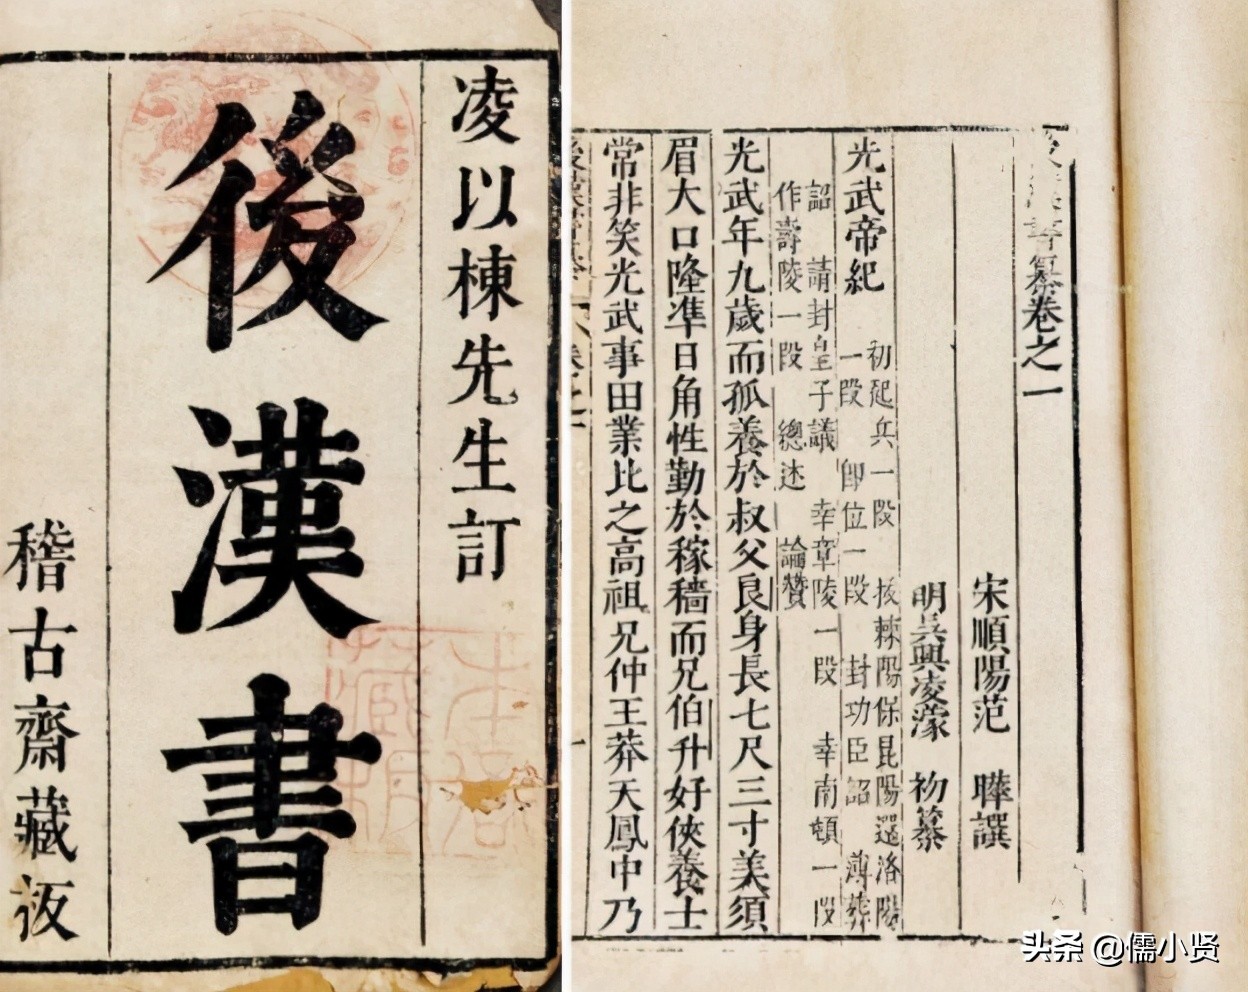 凌以棟先生訂
後漢書
稽古齋藏板
後漢書纂卷之一
宋順陽范　曄譔
明吳興凌濛　初纂
光武帝紀
初起兵一段　拔棘陽保昆陽還洛陽
一段　即位一段　封功臣詔　薄葬
詔　請封皇子議　幸章陵一段　幸南頓一段
作壽陵一段　總述　論贊
光武年九歲而孤養於叔父良身長七尺三寸美須
眉大口隆準日角性勤於稼穡而兄伯升好俠養士
常非笑光武事田業比之高祖兄仲王莽天鳳中乃
头条 @儒小贤